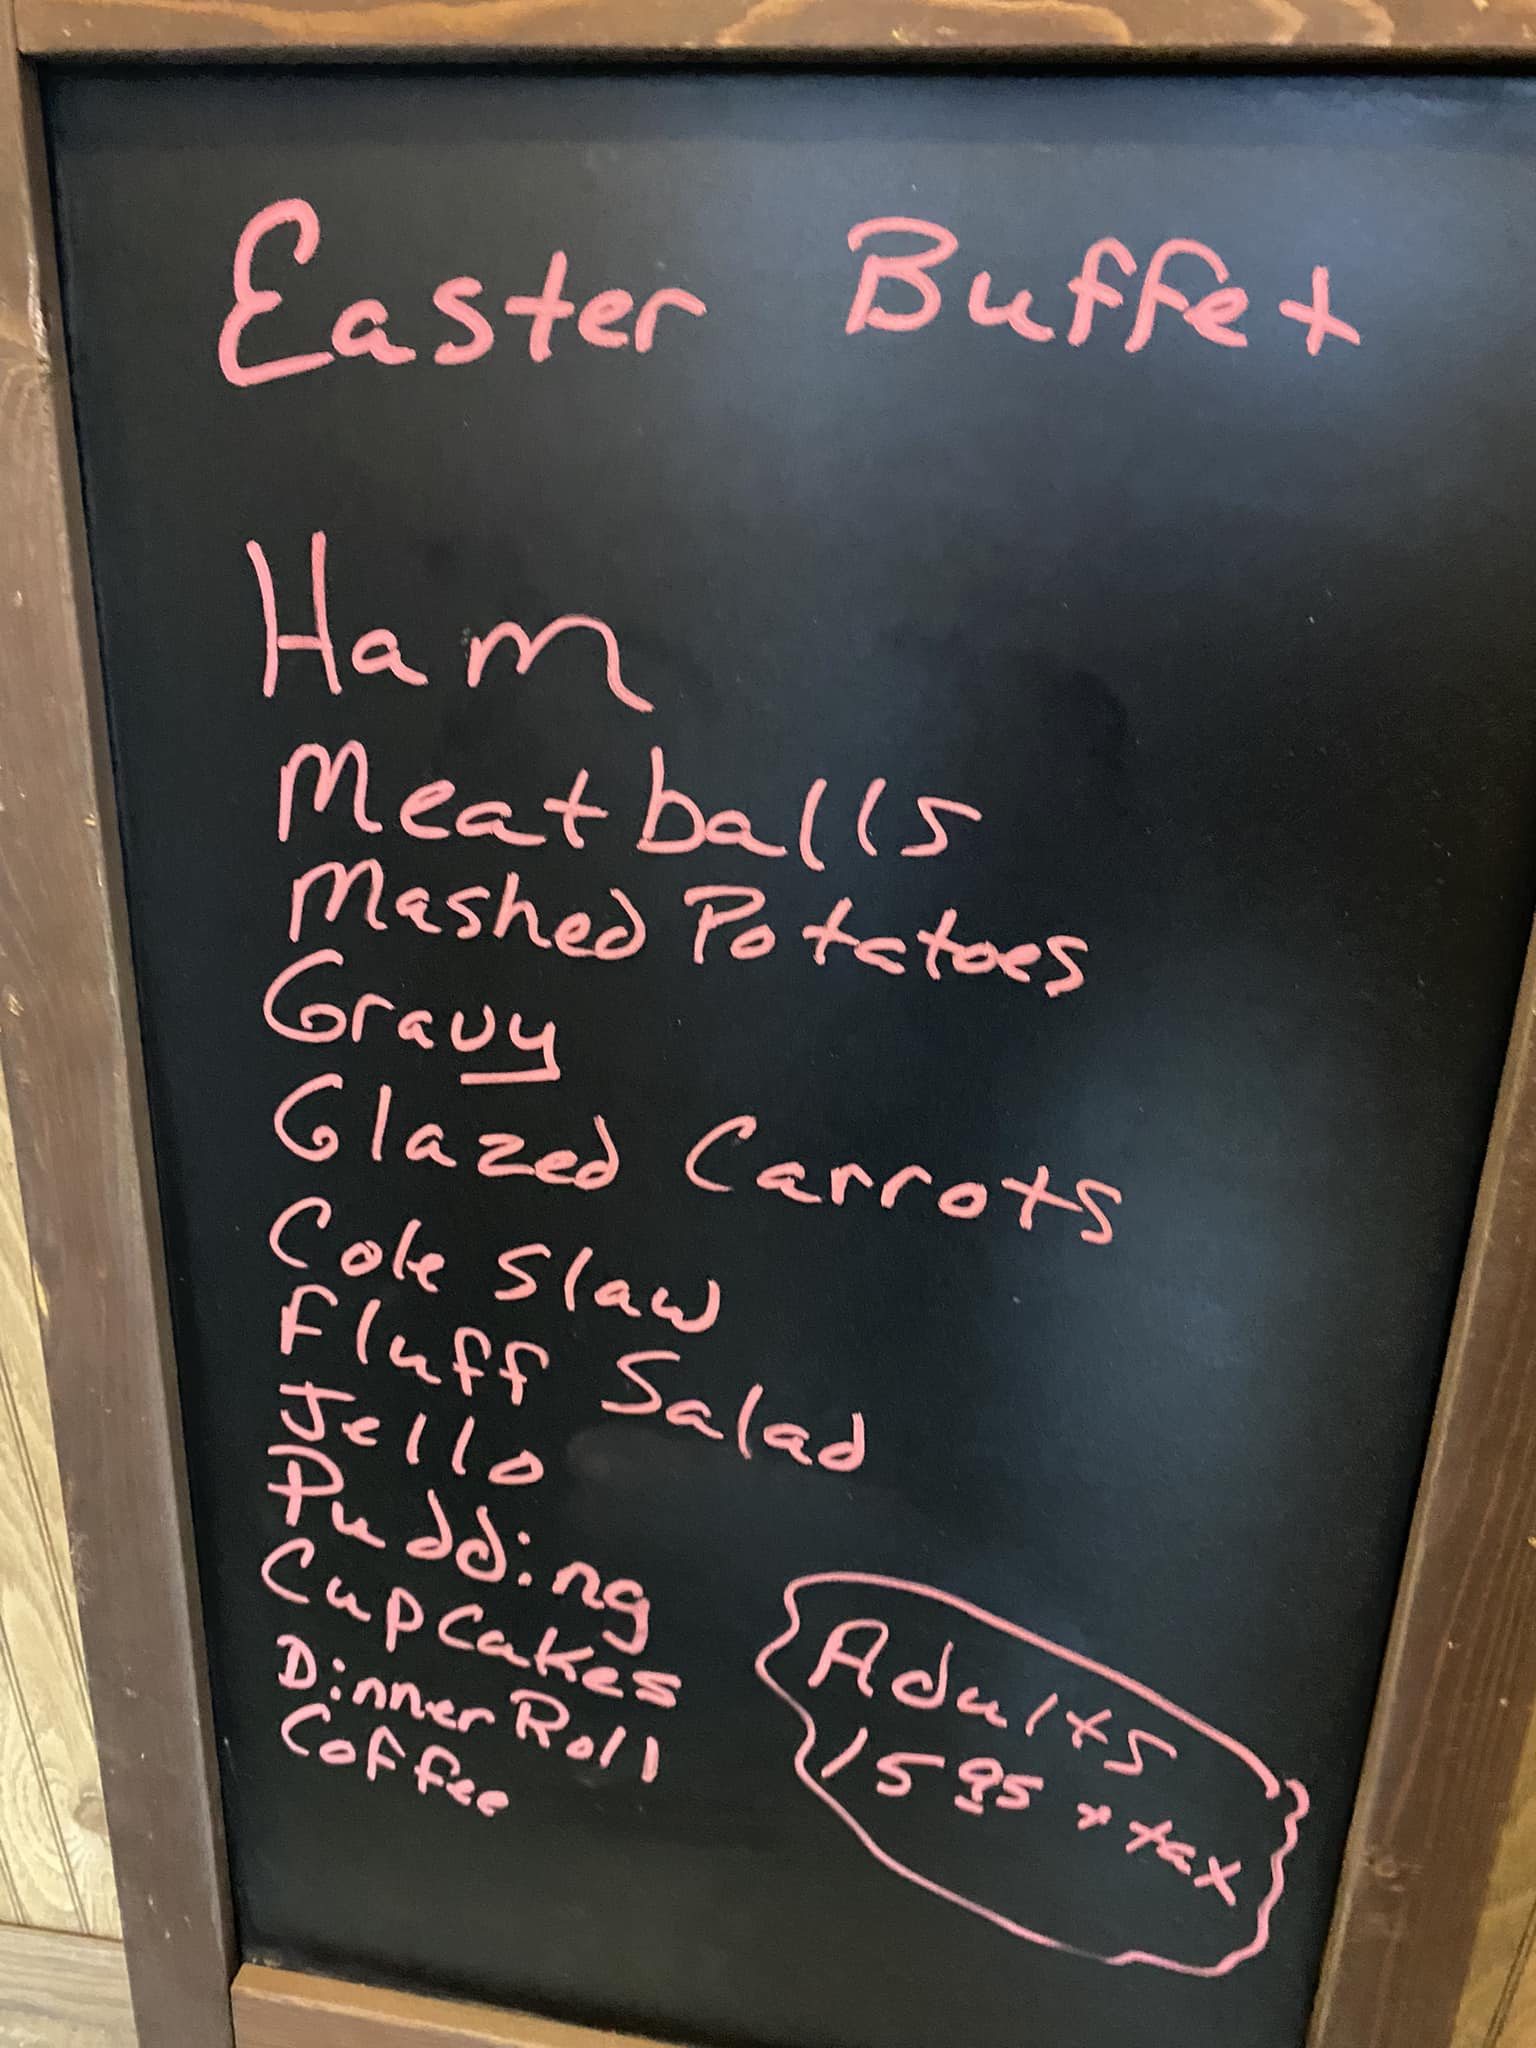 Easter Buffet
Ham
Meatballs
Mashed Potatoes
Gravy
Glazed Carrots
Cole Slaw
Fluff Salad
Jello
Pudding
CupCakes
Dinner Roll
Coffee
Adults
15 95 + tax